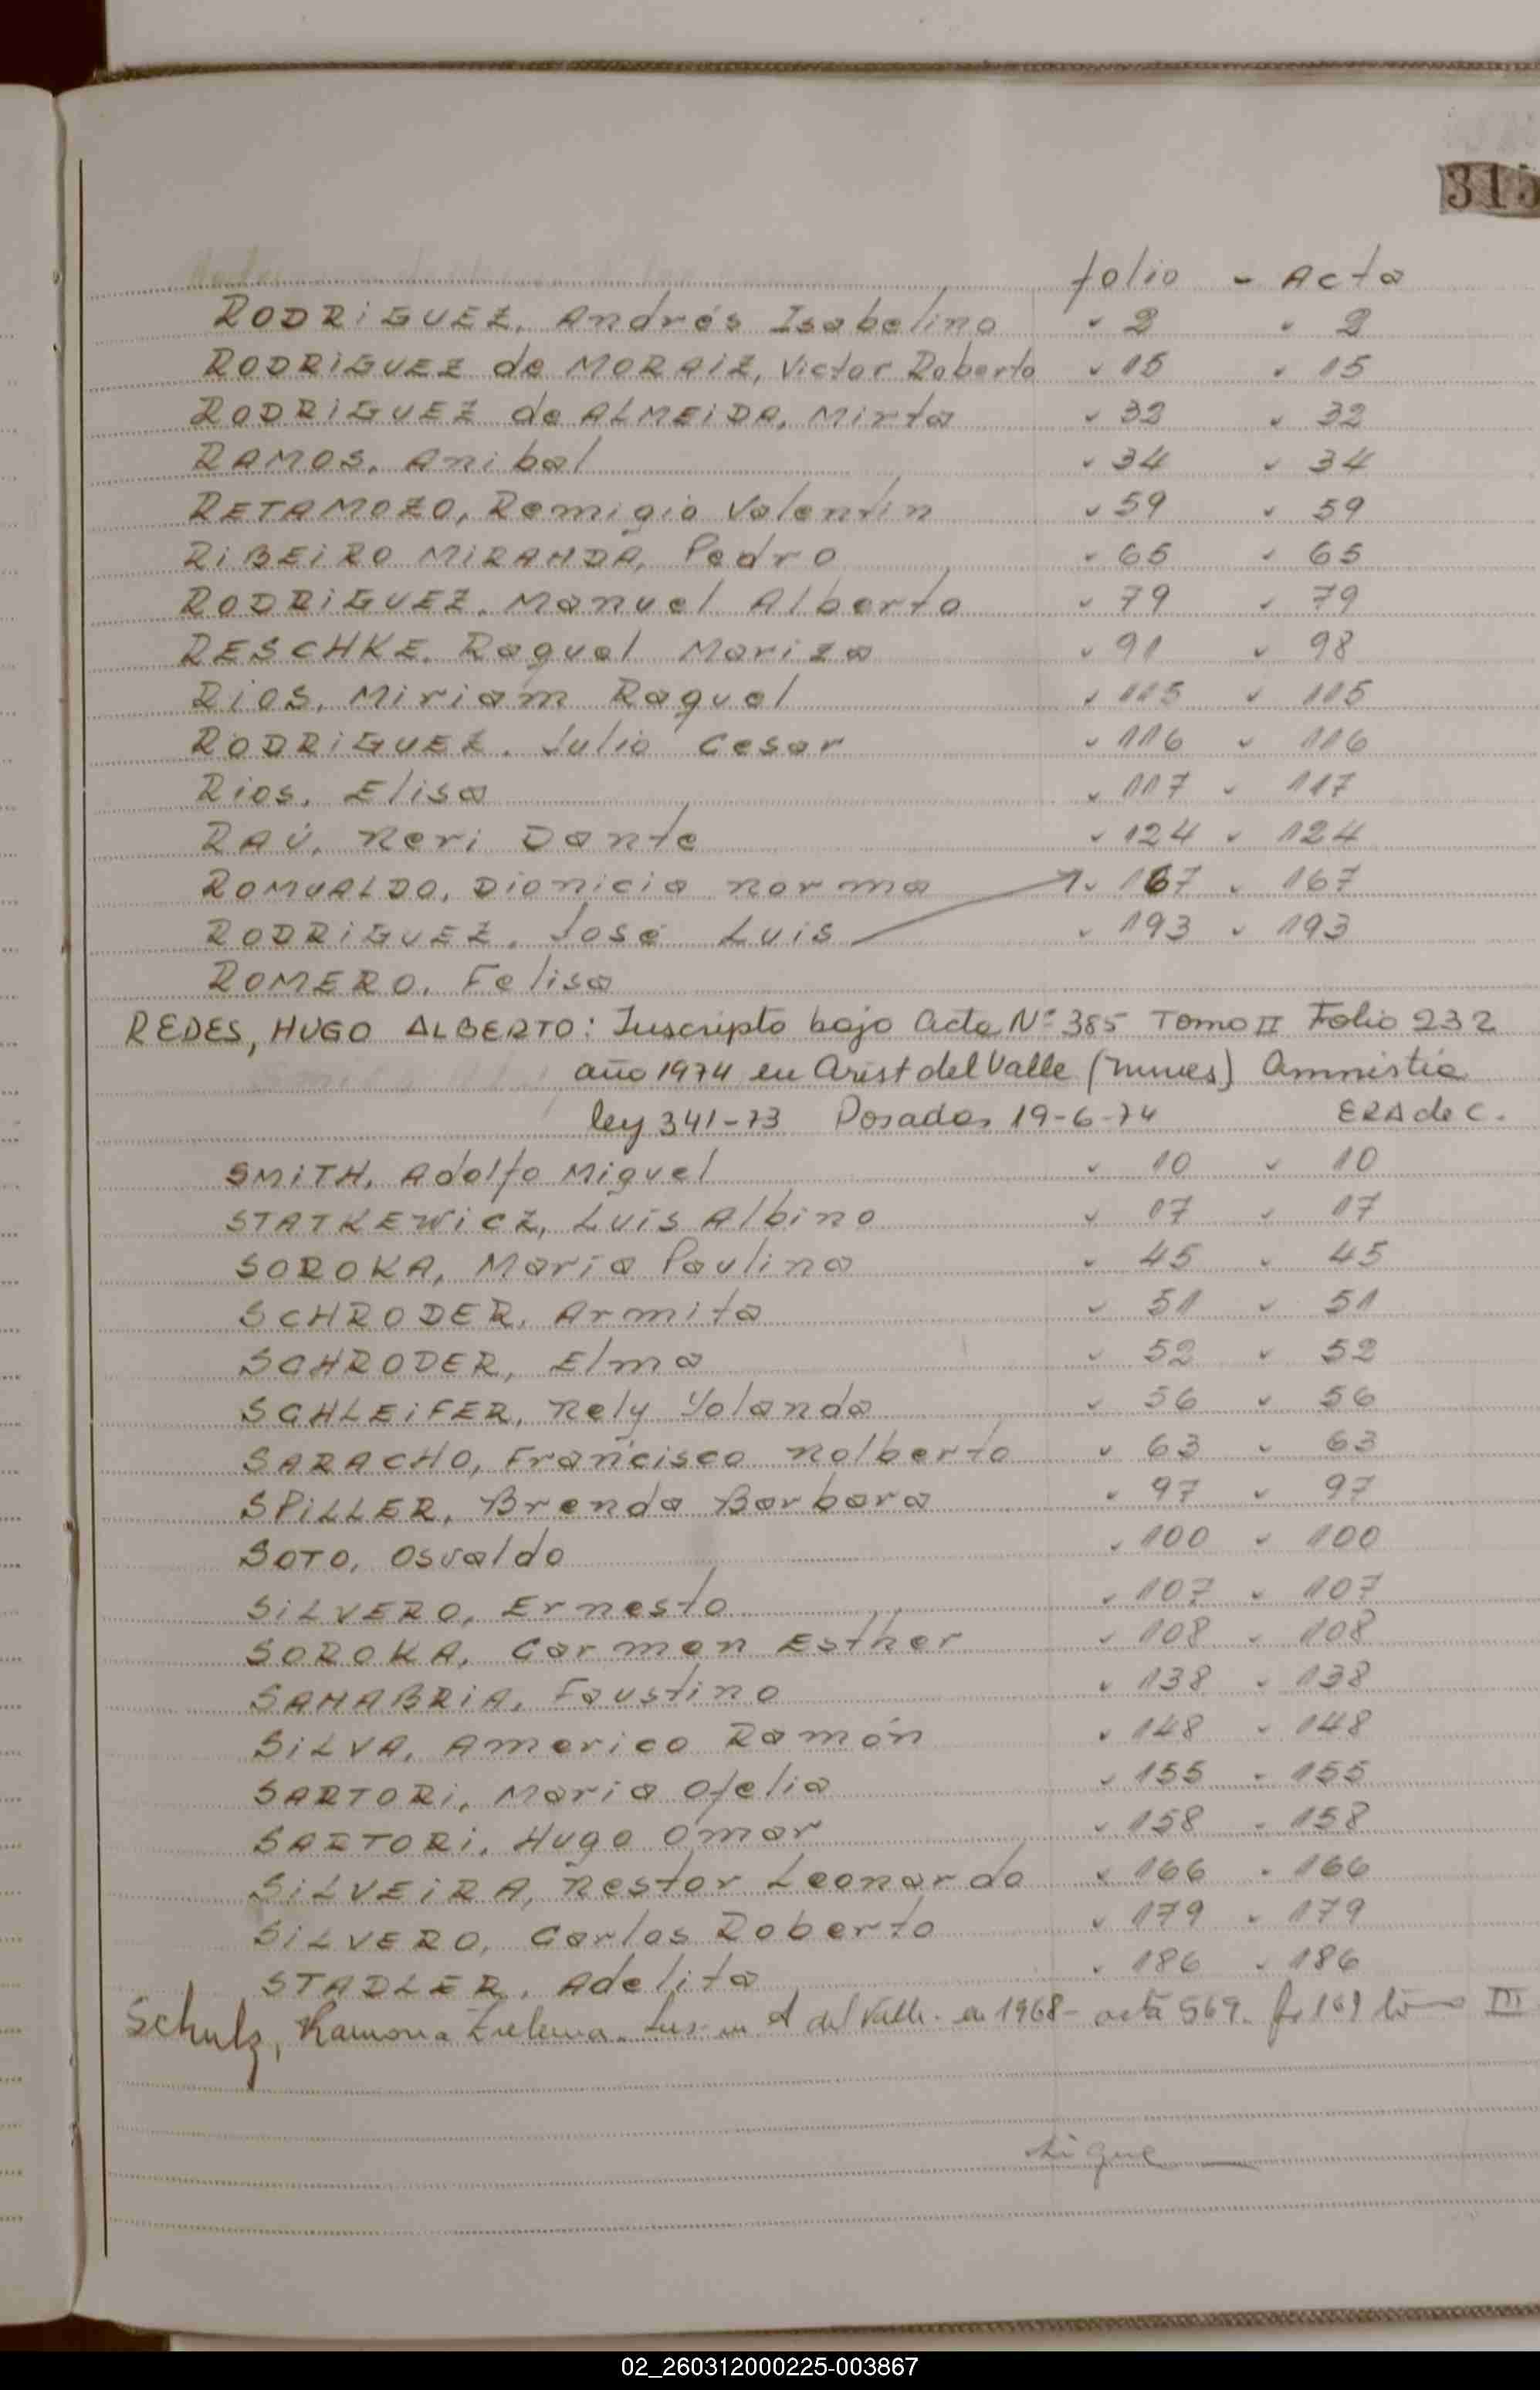 315
folio - Acta
RODRIGUEZ, Andrés Isabelino " 2 " 2
RODRIGUEZ de MORAIZ, Victor Roberto " 15 " 15
RODRIGUEZ de ALMEIDA, Mirta " 32 " 32
RAMOS, Anibal " 34 " 34
RETAMOZO, Remigio Valentín " 59 " 59
RIBEIRO MIRANDA, Pedro " 65 " 65
RODRIGUEZ, Manuel Alberto " 79 " 79
RESCHKE, Raquel Mariza " 91 " 98
RIOS, Miriam Raquel " 115 " 115
RODRIGUEZ, Julio Cesar " 116 " 116
Rios, Elisa " 117 " 117
RAÚ, Neri Dante " 124 " 124
ROMUALDO, Dionicia Norma " 167 " 167
RODRIGUEZ, José Luis " 193 " 193
ROMERO, Felisa
REDES, HUGO ALBERTO: Inscripto bajo Acta Nº 385 Tomo II Folio 232
año 1974 en Arist del Valle (Mnes) Amnistia
ley 341-73 Posadas 19-6-74 ERA de C.
SMITH, Adolfo Miguel " 10 " 10
STATKEWICZ, Luis Albino " 17 " 17
SOROKA, María Paulina " 45 " 45
SCHRODER, Armita " 51 " 51
SCHRODER, Elma " 52 " 52
SCHLEIFER, Nely Yolanda " 56 " 56
SARACHO, Francisco Nolberto " 63 " 63
SPILLER, Brenda Barbara " 97 " 97
SOTO, Osvaldo " 100 " 100
SILVERO, Ernesto " 107 " 107
SOROKA, Carmen Esther " 108 " 108
SANABRIA, Faustino " 138 " 138
SILVA, Americo Ramón " 148 " 148
SARTORI, Maria Ofelia " 155 " 155
SARTORI, Hugo Omar " 158 " 158
SILVEIRA, Nestor Leonardo " 166 " 166
SILVERO, Carlos Roberto " 179 " 179
STADLER, Adelita " 186 " 186
Schulz, Ramona Zulema. Ins- en A del Valle. en 1968 - acta 569. fo 169 tomo III
sigue
02_260312000225-003867